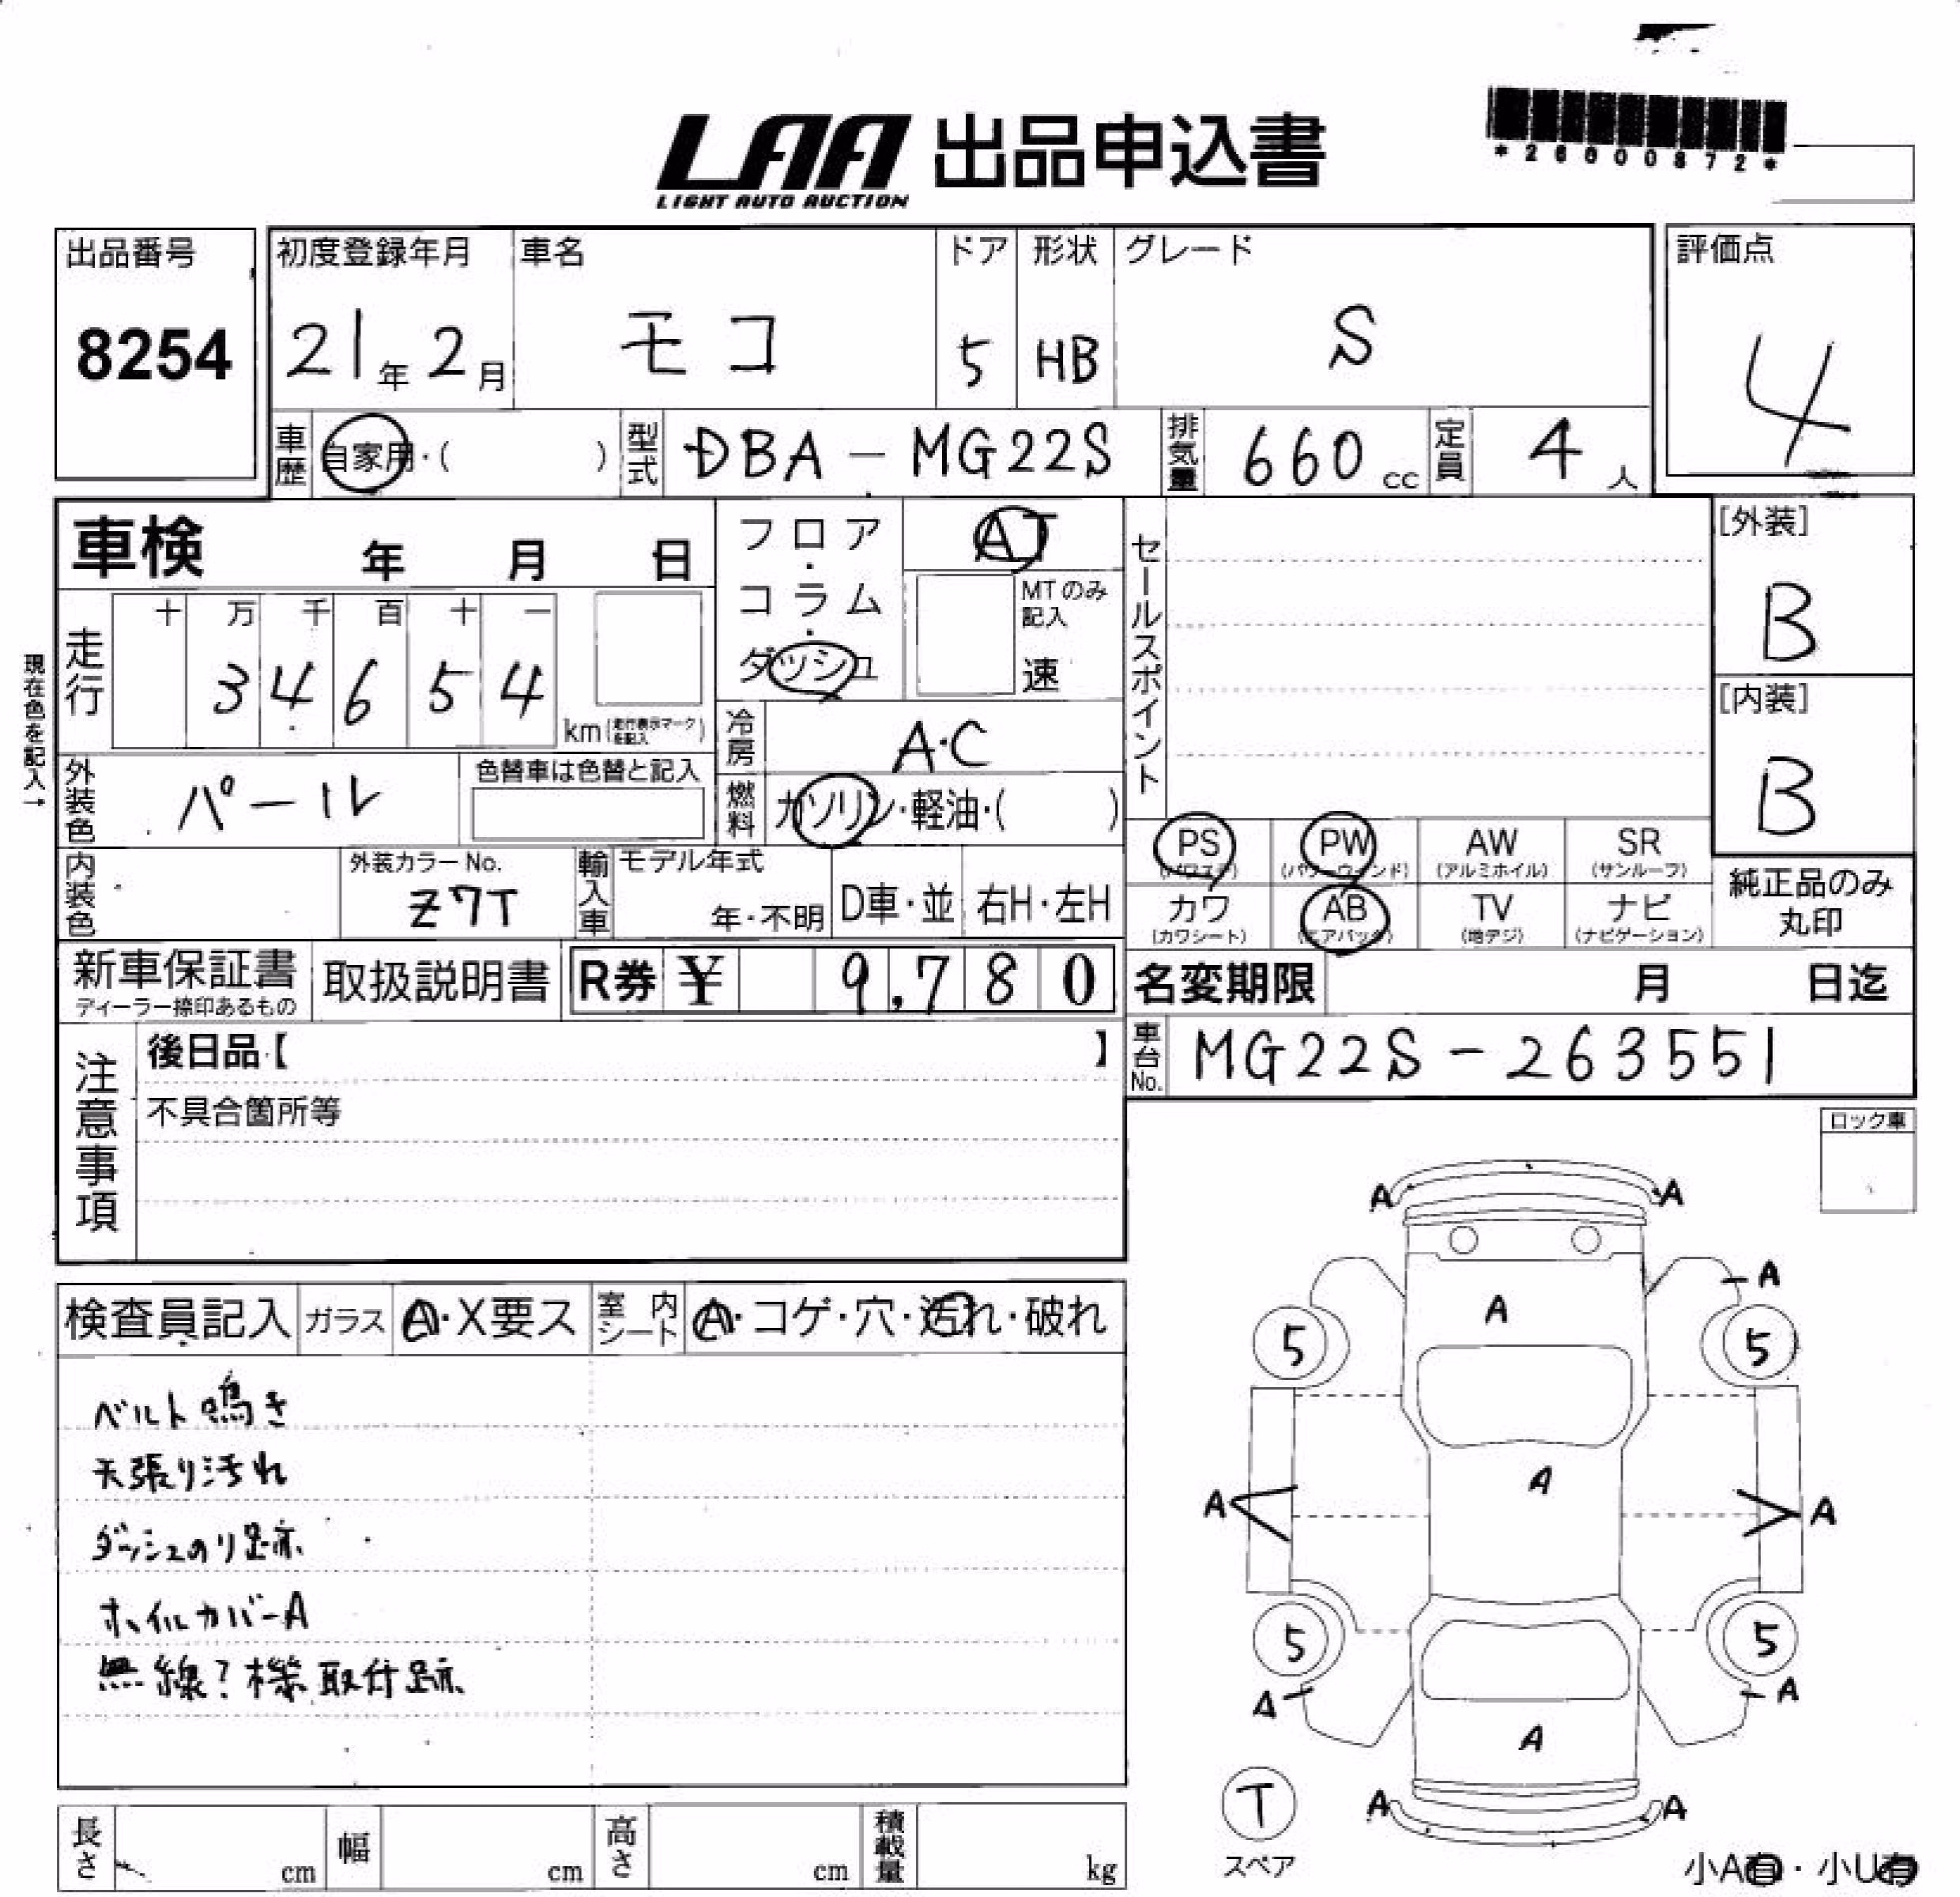 LAA 出品申込書
LIGHT AUTO AUCTION
*26000872*
出品番号
8254
初度登録年月
21年2月
車名
モコ
ドア
5
形状
HB
グレード
S
評価点
4
車歴
自家用・( )
型式
DBA-MG22S
排気量
660cc
定員
4人
車検 年 月 日
フロア・コラム・ダッシュ
AT
MTのみ記入
速
セールスポイント
[外装]
B
[内装]
B
現在色を記入→
走行
十 万 千 百 十 一
3 4 6 5 4
km(走行表示マークを記入)
冷房
A・C
外装色
パール
色替車は色替と記入
燃料
ガソリン・軽油・( )
内装色
外装カラーNo.
Z7T
輸入車
モデル年式
年・不明
D車・並
右H・左H
PS
(パワステ)
PW
(パワーウィンド)
AW
(アルミホイル)
SR
(サンルーフ)
カワ
(カワシート)
AB
(エアバック)
TV
(地デジ)
ナビ
(ナビゲーション)
純正品のみ
丸印
新車保証書
ディーラー捺印あるもの
取扱説明書
R券 ¥ 9,780
名変期限 月 日迄
注意事項
後日品【 】
不具合箇所等
車台No.
MG22S-263551
ロック車
検査員記入
ガラス
A・X要ス
室内シート
A・コゲ・穴・汚れ・破れ
ベルト鳴き
天張り汚れ
ダッシュのり跡
ホイルカバーA
無線?機取付跡
A A
A
A
5 5
A
A A
5 5
A A
A
T
スペア
A A
長さ cm
幅 cm
高さ cm
積載量 kg
小A有・小U有